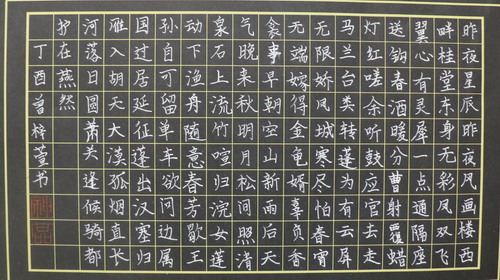 昨夜星辰昨夜风画楼西
畔桂堂东身无彩凤双飞
翼心有灵犀一点通隔座
送钩春酒暖分曹射覆蜡
灯红嗟余听鼓应官去走
马兰台类转蓬为有云屏
无限娇凤城寒尽怕春宵
无端嫁得金龟婿辜负香
衾事早朝空山新雨后天
气晚来秋明月松间照清
泉石上流竹喧归浣女莲
动下渔舟随意春芳歇王
孙自可留单车欲问边属
国过居延征蓬出汉塞归
雁入胡天大漠孤烟直长
河落日圆萧关逢候骑都
护在燕然
丁酉曾梓萱书